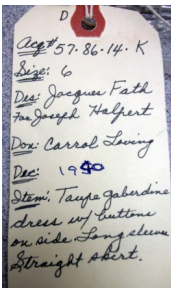 D
Acq# 57.86.14. K
Size: 6
Des: Jacques Fath
For Joseph Halpert
Don: Carrol Loving
Dec: 1950
Item: Taupe gaberdine
dress w/ buttons
on side Long sleeve
Straight skirt.